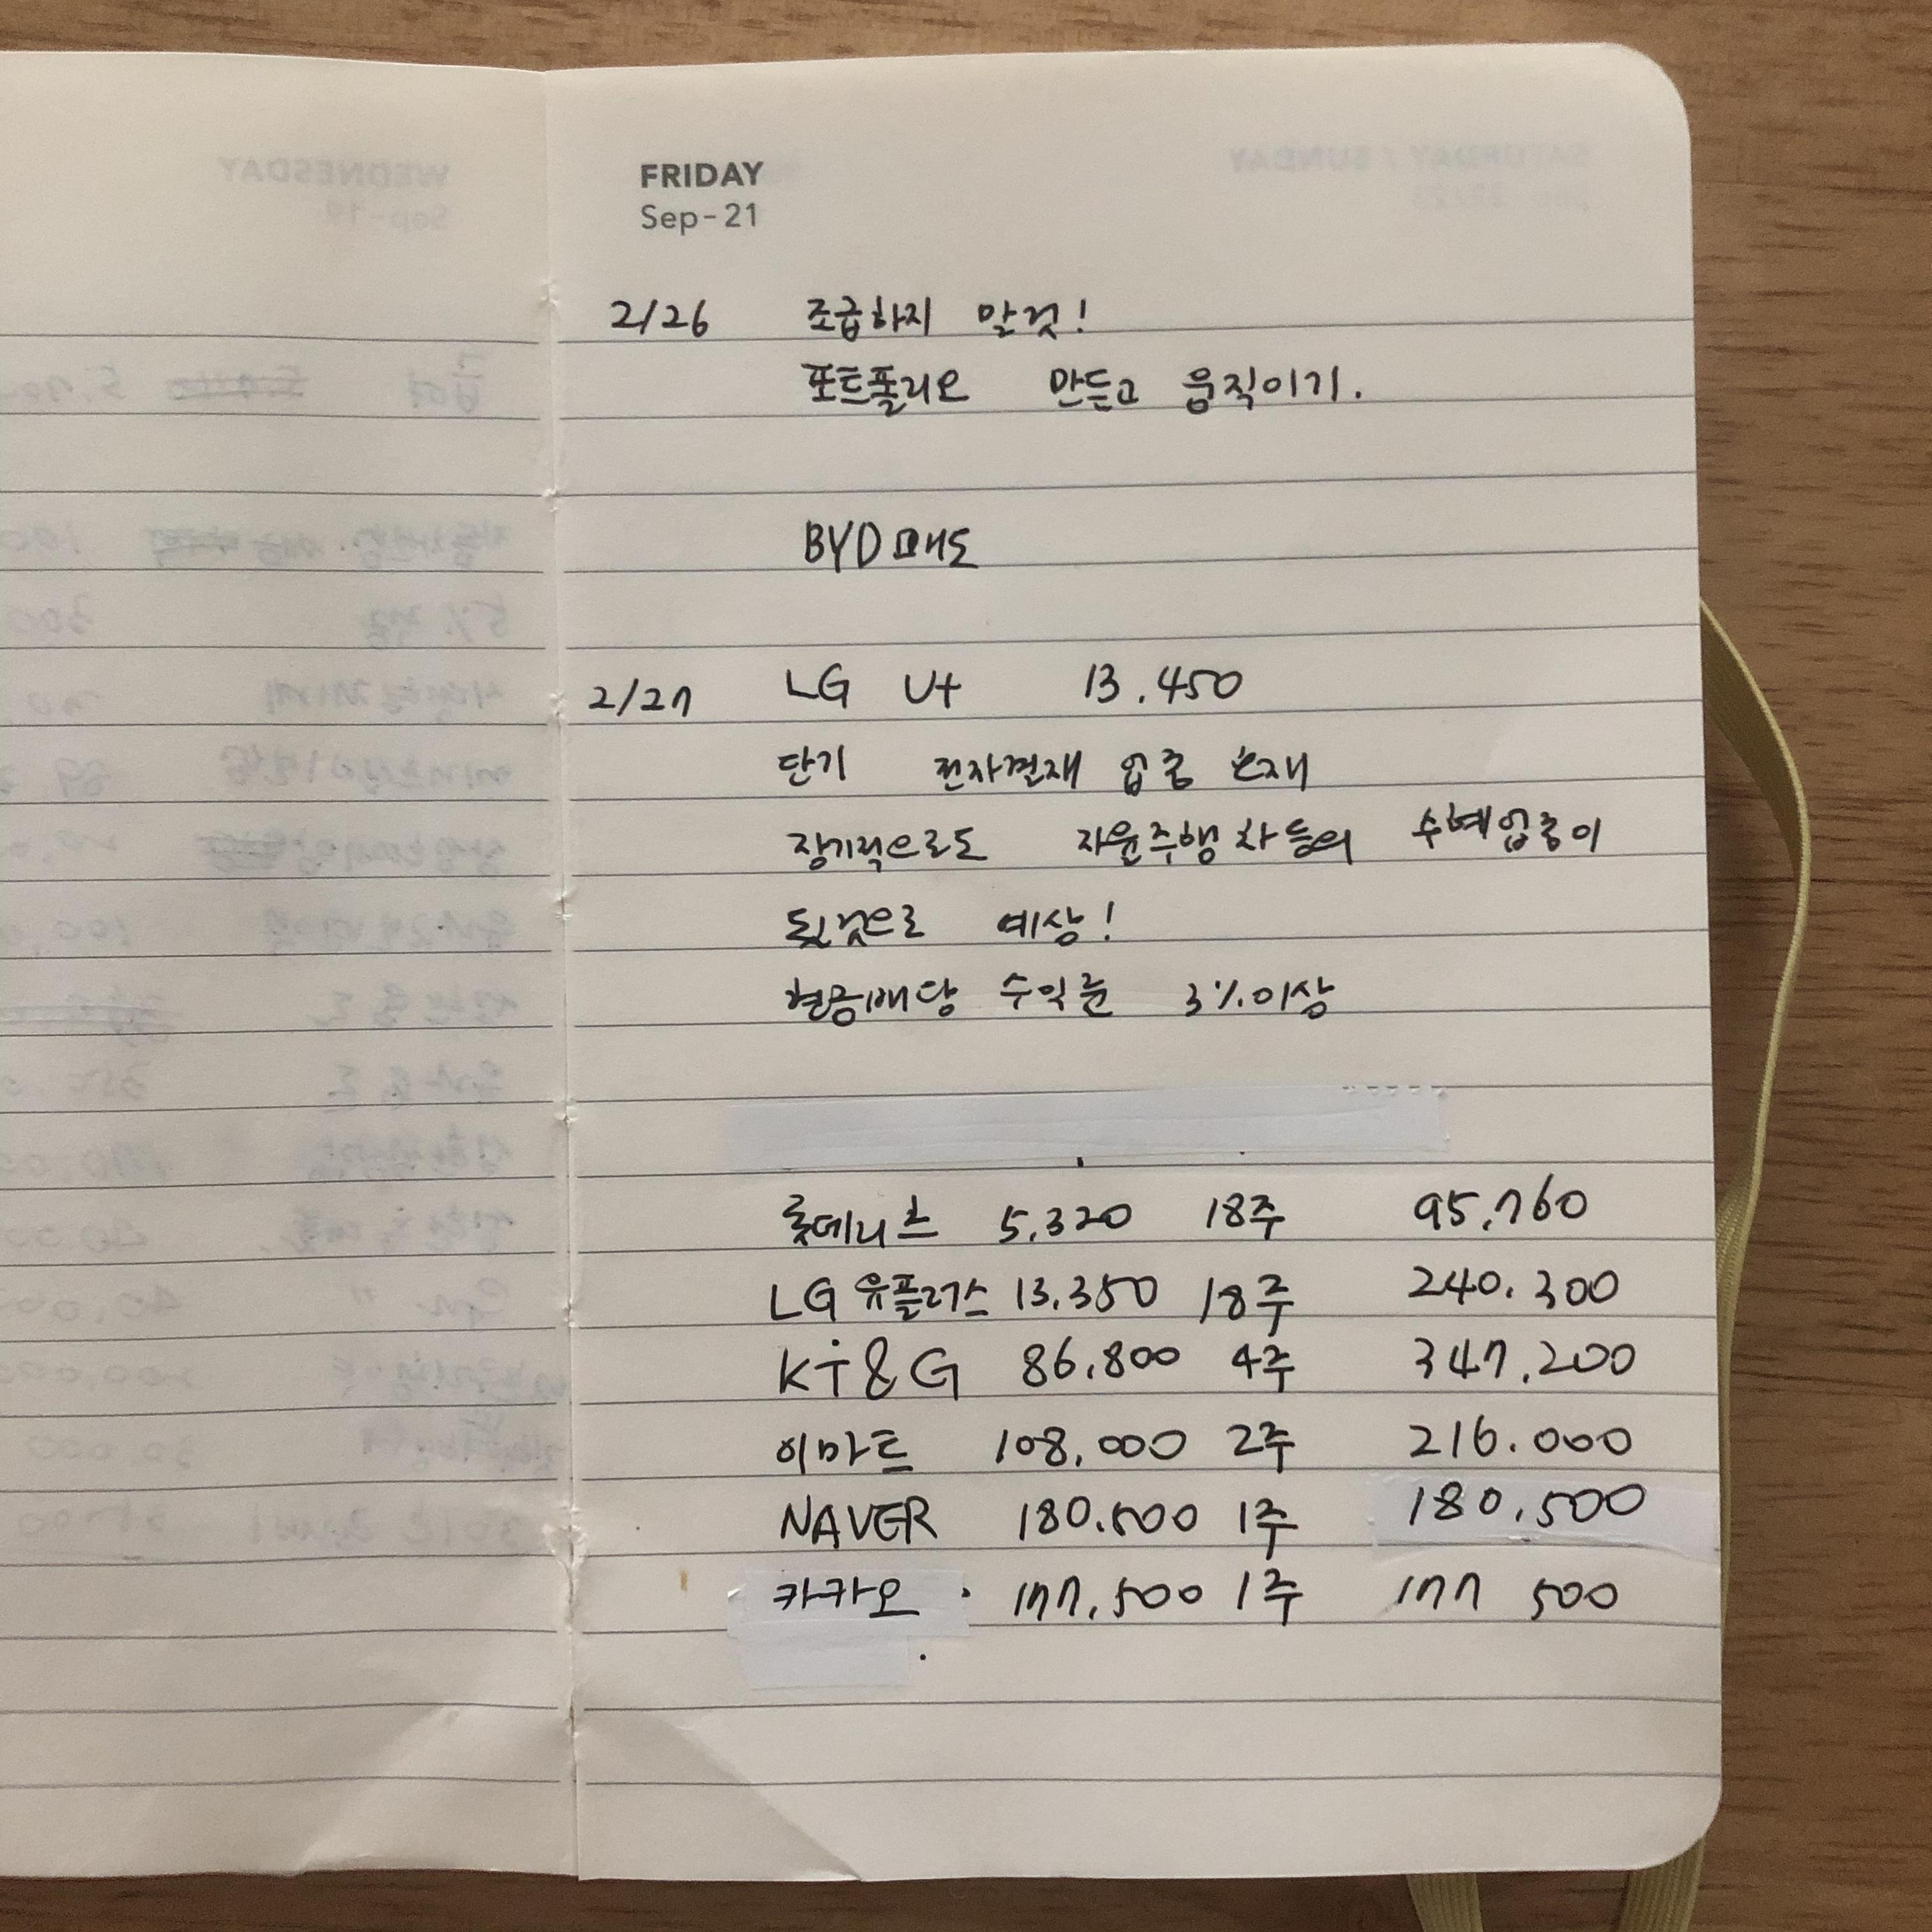 FRIDAY
Sep-21
2/26 조급하지 말것!
포트폴리오 만든고 움직이기.
BYD 매도
2/27 LG U+ 13.450
단기 전자결재 업종 호재
장기적으로도 자율주행차 등의 수혜업종이
될것으로 예상!
현금배당 수익률 3%이상
롯데리츠 5,320 18주 95,760
LG 유플러스 13,350 18주 240.300
KT&G 86,800 4주 347,200
이마트 108,000 2주 216.000
NAVER 180.500 1주 180,500
카카오 177,500 1주 177 500
WEDNESDAY
Sep-19
SATURDAY / SUNDAY